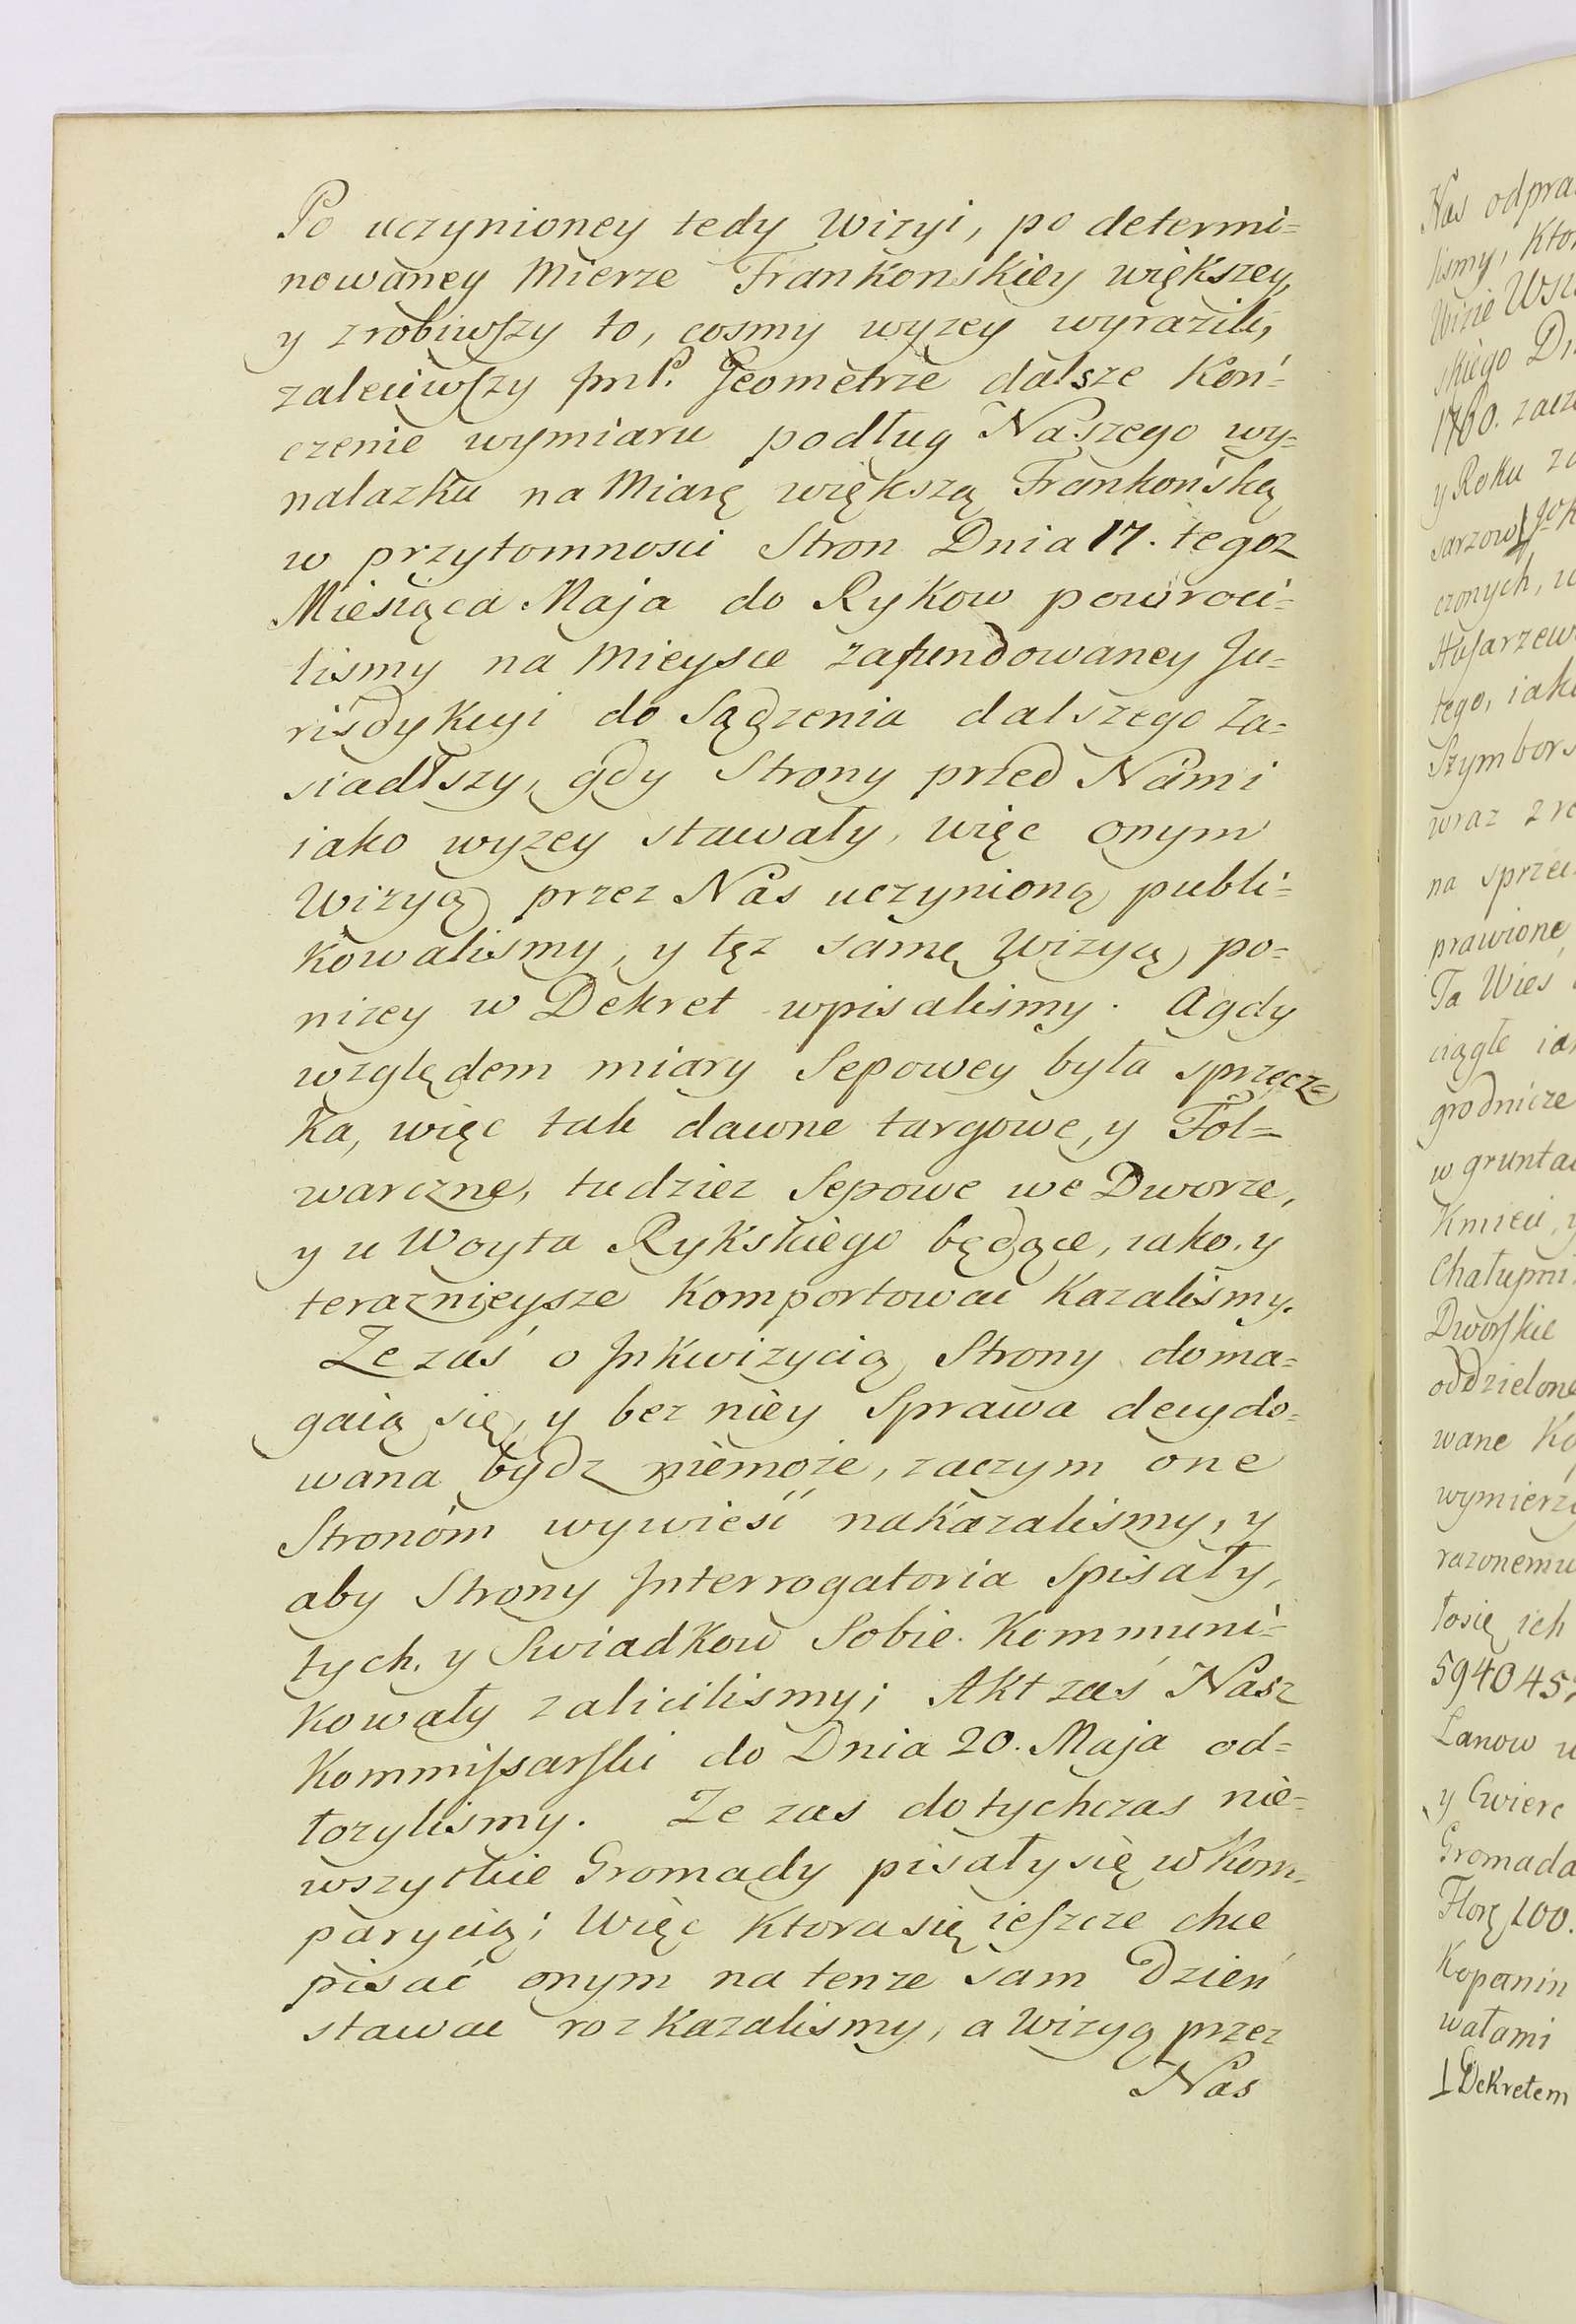 Po uczynioney tedy Wizyi, po determi=
nowaney Mierze Frankonskiey większey,
y zrobiwſzy to, cosmy wyzey wyrazili,
zaleciwſzy JmP. Geometrze dalsze Koń=
czenie wymiaru podług Naszego wy=
nalazku na Miarę większą Frankońską
w przytomnosci Stron Dnia 17. tegoz
Miesiąca Maja do Rykow powroci=
lismy na Mieysce zafundowaney Ju=
risdykcyi do Sądzenia dalszego Za=
siadłszy, gdy Strony przed Nami
iako wyzey stawały, więc onym
Wizyą przez Nas uczynioną publi=
kowalismy, y tęz samę Wizyą po=
nizey w Dekret wpisalismy. A gdy
względem miary Sepowey była sprzecz=
ka, więc tak dawne targowe, y Fol=
warczne, tudziez Sepowe we Dworze,
y u Woyta Rykskiego będące, iako y
teraznieysze Komportowac Kazalismy.
Ze zaś o Jnkwizycią Strony doma=
gaią się, y bez niey Sprawa decydo=
wana bydz niemoże, zaczym one
Stronóm wywieść nakazalismy, y
aby Strony Jnterrogatoria Spisały,
tych y Swiadkow Sobie Kommuni=
kowały zalicilismy; Akt zaś Nasz
Kommiſsarſki do Dnia 20. Maja od=
łozylismy. Ze zas dotychczas nie=
wszystkie Gromady pisały się w Kom=
parycią; Więc Ktora się ieſzcze chce
pisać onym na tenze sam Dzień
stawac rozkazalismy, a Wizyą przez
Nas
Nas odpra
lismy, Kto
Wizie Wsz
skiego D
1760. zacz
y Roku za
sarzow
czonych, w
Huſarzew
tego, iako
Szymbors
wraz z
na sprze
prawione
Ta Wieś
ciągłe ia
grodnicze
w grunta
Kmieci, y
Chałupni
Dworſkie
oddzielone
wane Ko
wymierz
razonemu
łosię ich
594045
Lanow w
y Cwierc
Gromada
Florę 100.
Kopanin
wałami
Dekretem